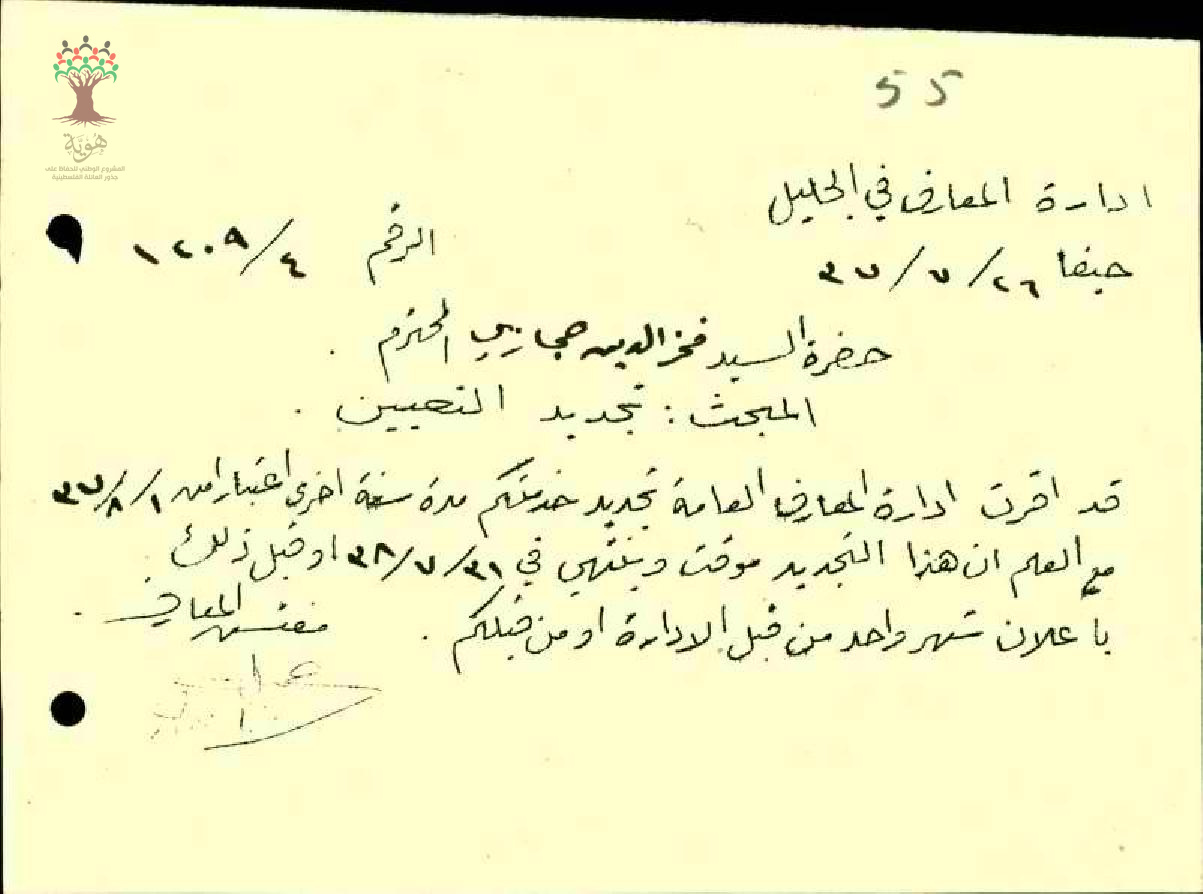 هُوِيَّة
المشروع الوطني للحفاظ على
جذور العائلة الفلسطينية
55
ادارة المعارف في الجليل
حيفا ٢٦/٧/٣٧ الرقم ١٢٠٩/٤
حضرة السيد فخر الدين حجازي المحترم .
المبحث : تجديد التعيين .
قد اقرت ادارة المعارف العامة تجديد خدمتكم مدة سنة اخرى اعتبارا من ٣٧/٨/١
مع العلم ان هذا التجديد موقت وينتهي في ٣٨/٧/٣١ او قبل ذلك
باعلان شهر واحد من قبل الادارة او من قبلكم .
مفتش المعارف .